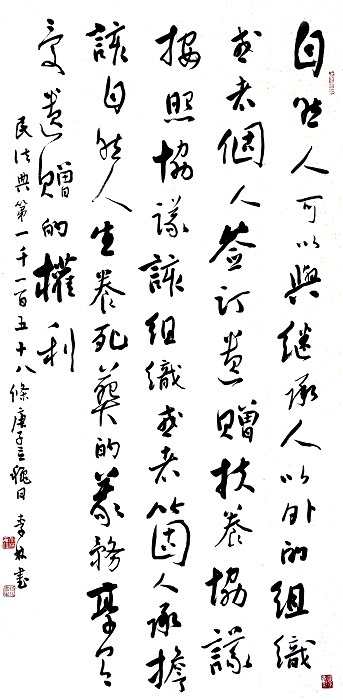 自然人可以與继承人以外的組織
或者個人签订遗赠扶养協議
按照協議該組織或者箇人承擔
該自然人生养死葬的義務享有
受遗赠的權利
民法典第一千一百五十八條庚子穐日 李書